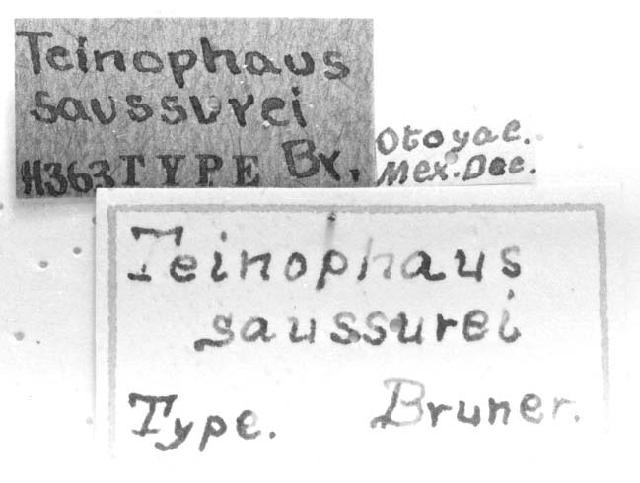 Teinophaus
saussurei
H363 TYPE Br.
Otoyac.
Mex. Dec.
Teinophaus
saussurei
Type. Bruner.